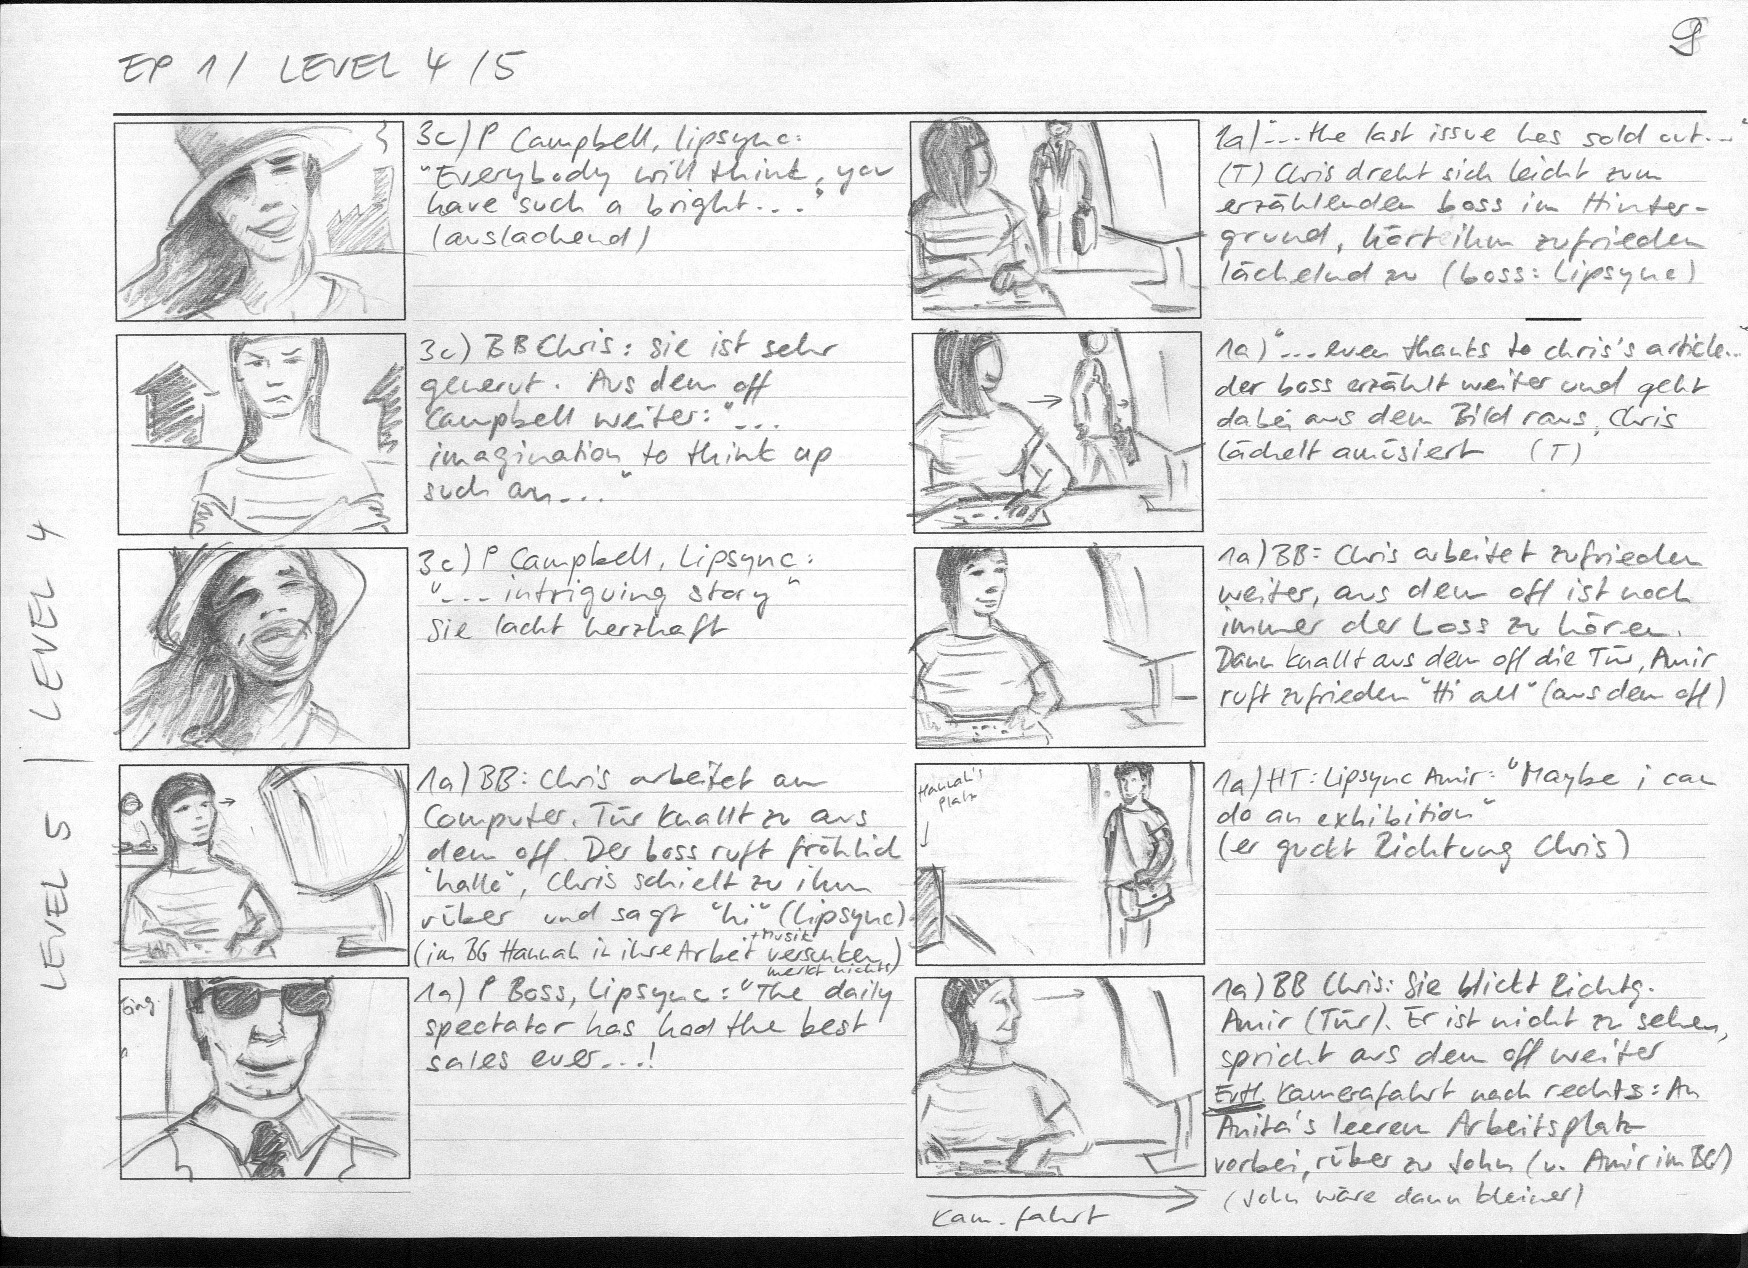 EP 1 / LEVEL 4 / 5
9
3c) P Campbell, Lipsync:
"Everybody will think, you
have such a bright..."
(auslachend)
3c) BB Chris: Sie ist sehr
genervt. Aus dem off
Campbell weiter: "...
imagination to think up
such an..."
3c) P Campbell, Lipsync:
"... intriguing story"
Sie lacht herzhaft
LEVEL 5 | LEVEL 4
1a) BB: Chris arbeitet am
Computer. Tür knallt zu aus
dem off. Der boss ruft fröhlich
"hallo", Chris schielt zu ihm
rüber und sagt "hi" (Lipsync)
(im BG Hannah in ihre Arbeit + Musik versunken)
merkt nichts
1a) P Boss, Lipsync: "The daily
spectator has had the best
sales ever...!
1a) "... the last issue has sold out..."
(T) Chris dreht sich leicht zum
erzählenden boss im Hinter-
grund, hört ihm zufrieden
lächelnd zu (boss: Lipsync)
1a) "... even thanks to chris's article..."
der boss erzählt weiter und geht
dabei aus dem Bild raus, Chris
lächelt amüsiert (T)
1a) BB: Chris arbeitet zufrieden
weiter, aus dem off ist noch
immer der boss zu hören.
Dann knallt aus dem off die Tür, Amir
ruft zufrieden "Hi all" (aus dem off)
Hannah's
Platz
1a) HT: Lipsync Amir: "Maybe i can
do an exhibition"
(er guckt Richtung Chris)
1a) BB Chris: Sie blickt Richtg.
Amir (Tür). Er ist nicht zu sehen,
spricht aus dem off weiter
Evtl. Kamerafahrt nach rechts: An
Anita's leerem Arbeitsplatz
vorbei, rüber zu John (u. Amir im BG)
(John wäre dann kleiner)
Kam.fahrt